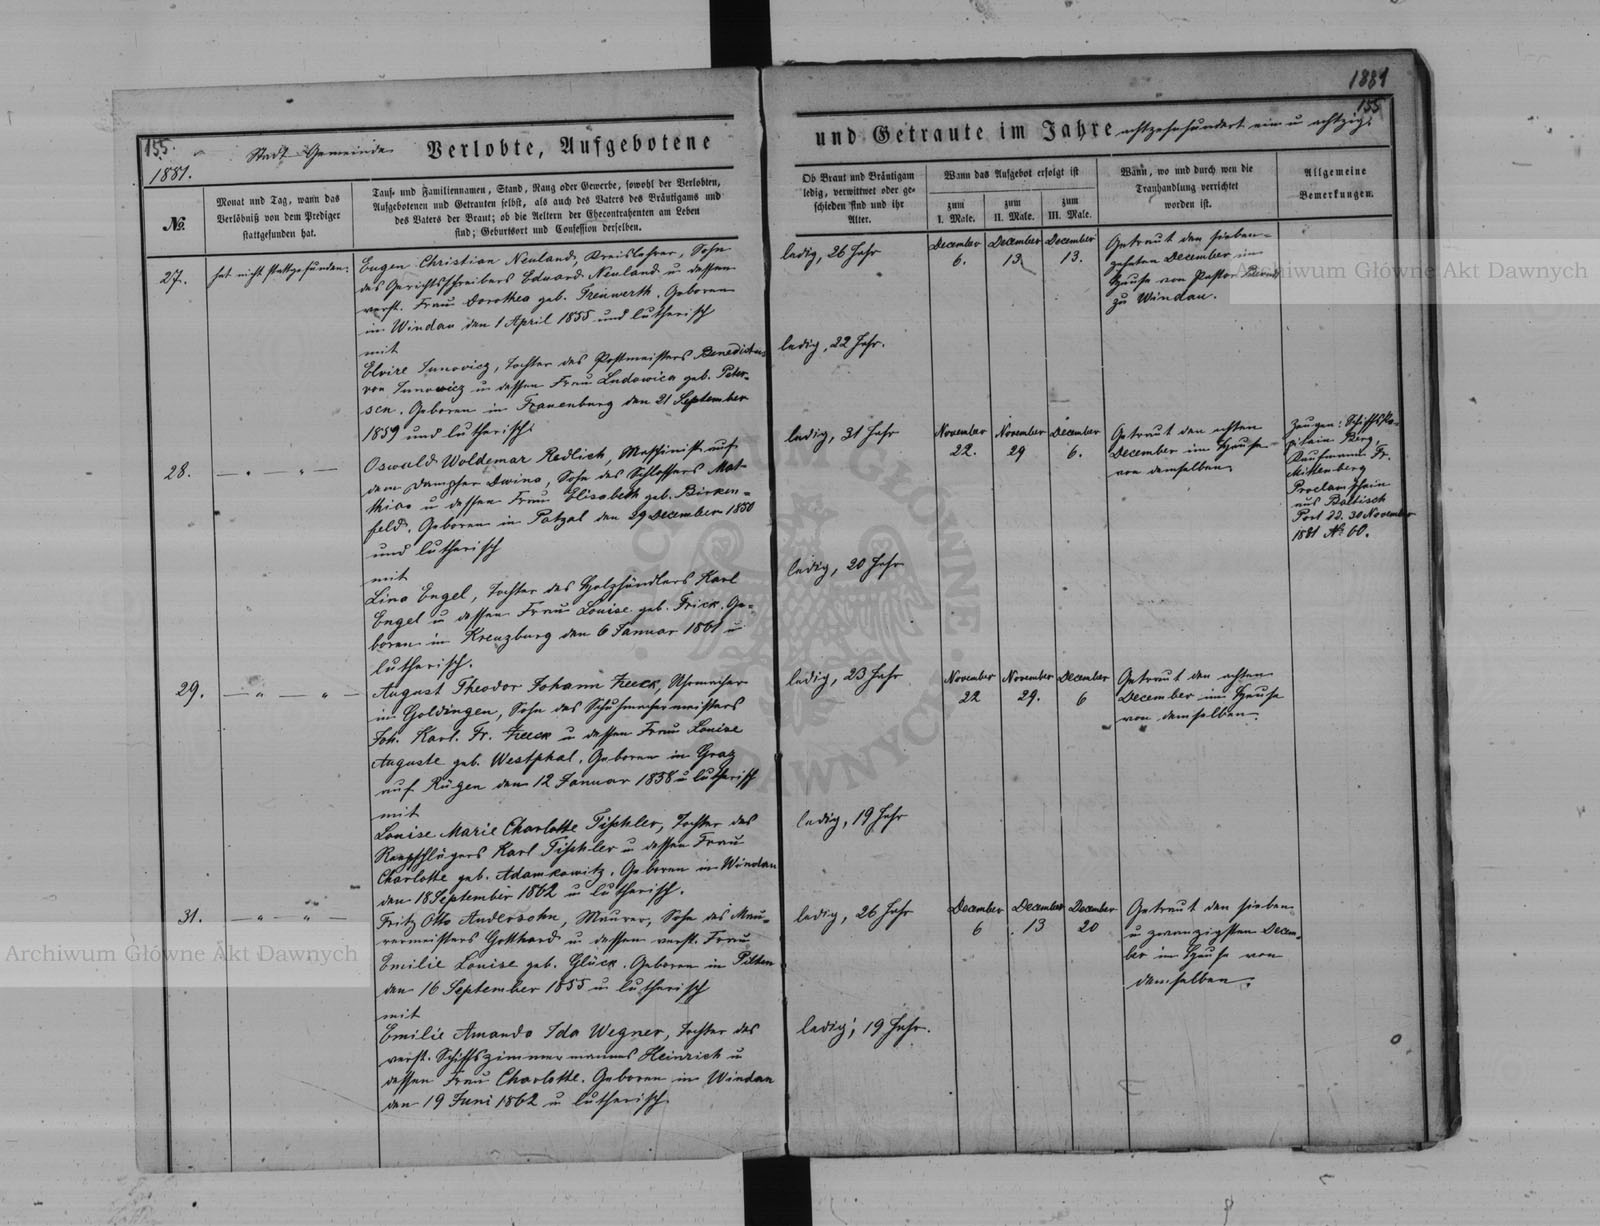 1881
155.
155
1881.
Stadt Gemeinde
Verlobte, Aufgebotene
und Getraute im Jahre achtzehnhundert ein u achtzig.
№.
Monat und Tag, wann das
Verlöbniß von dem Prediger
stattgefunden hat.
Tauf- und Familiennamen, Stand, Rang oder Gewerbe, sowohl der Verlobten,
Aufgebotenen und Getrauten selbst, als auch des Vaters des Bräutigams und
des Vaters der Braut; ob die Aeltern der Ehecontrahenten am Leben
sind; Geburtsort und Confession derselben.
Ob Braut und Bräutigam
ledig, verwittwet oder ge-
schieden sind und ihr
Alter.
Wann das Aufgebot erfolgt ist
zum
I. Male.
zum
II. Male.
zum
III. Male.
Wann, wo und durch wen die
Trauhandlung verrichtet
worden ist.
Allgemeine
Bemerkungen.
27.
hat nicht stattgefunden.
Eugen Christian Neuland, Kreislehrer, Sohn
des Gerichtsschreibers Eduard Neuland u dessen
verst. Frau Dorothea geb. Freuwerth. Geboren
in Windau den 1 April 1855 und lutherisch
mit
Elvire Junovicz, Tochter des Postmeisters Benedictus
von Junowicz u dessen Frau Ludowica geb. Peter-
sen. Geboren in Frauenburg den 21 September
1859 und lutherisch.
ledig, 26 Jahr
ledig, 22 Jahr.
December
6.
December
13
December
13.
Getraut den sieben-
zehnten December im
Hause von Pastor
zu Windau.
28.
— " — " —
Oswald Woldemar Redlich, Maschinist auf
dem Dampfer Dwina, Sohn des Schlossers Mat-
thias u dessen Frau Elisabeth geb. Birken-
feld. Geboren in Patzal den 29 December 1850
und lutherisch
mit
Lina Engel, Tochter des Holzhändlers Karl
Engel u dessen Frau Louise geb. Frick. Ge-
boren in Kreuzburg den 6 Januar 1861 u
lutherisch.
ledig, 31 Jahr
ledig, 20 Jahr
November
22.
November
29
December
6.
Getraut den achten
December im Hause
von demselben
Zeugen: Schiffska-
pitain Berg,
Kaufmann Fr.
Mittenberg
Proclamschein
aus Baltisch
Port dd. 30 November
1881 № 60.
29.
— " — " —
August Theodor Johann Zeeck, Uhrmacher
in Goldingen, Sohn des Schuhmachermeisters
Joh. Karl. Fr. Zeeck u dessen Frau Louise
Auguste geb. Westphal. Geboren in Graz
auf Rügen den 12 Januar 1858 u lutherisch
mit
Louise Marie Charlotte Tischler, Tochter des
Reepschlägers Karl Tischler u dessen Frau
Charlotte geb. Adamkowitz. Geboren in Windau
den 18 September 1862 u lutherisch.
ledig, 23 Jahr
ledig, 19 Jahr
November
22
November
29.
December
6
Getraut den achten
December im Hause
von demselben.
31.
— " — " —
Fritz Otto Andersohn, Maurer, Sohn des Mau-
rermeisters Gotthard u dessen verst. Frau
Emilie Louise geb. Glück. Geboren in Pilten
den 16 September 1855 u lutherisch
mit
Emilie Amanda Ida Wegner, Tochter des
verst. Schiffszimmermannes Heinrich u
dessen Frau Charlotte. Geboren in Windau
den 19 Juni 1862 u lutherisch.
ledig, 26 Jahr
ledig, 19 Jahr.
December
6
December
13
December
20
Getraut den sieben
u zwanzigsten Decem-
ber im Hause von
demselben.
Archiwum Główne Akt Dawnych
Archiwum Główne Akt Dawnych